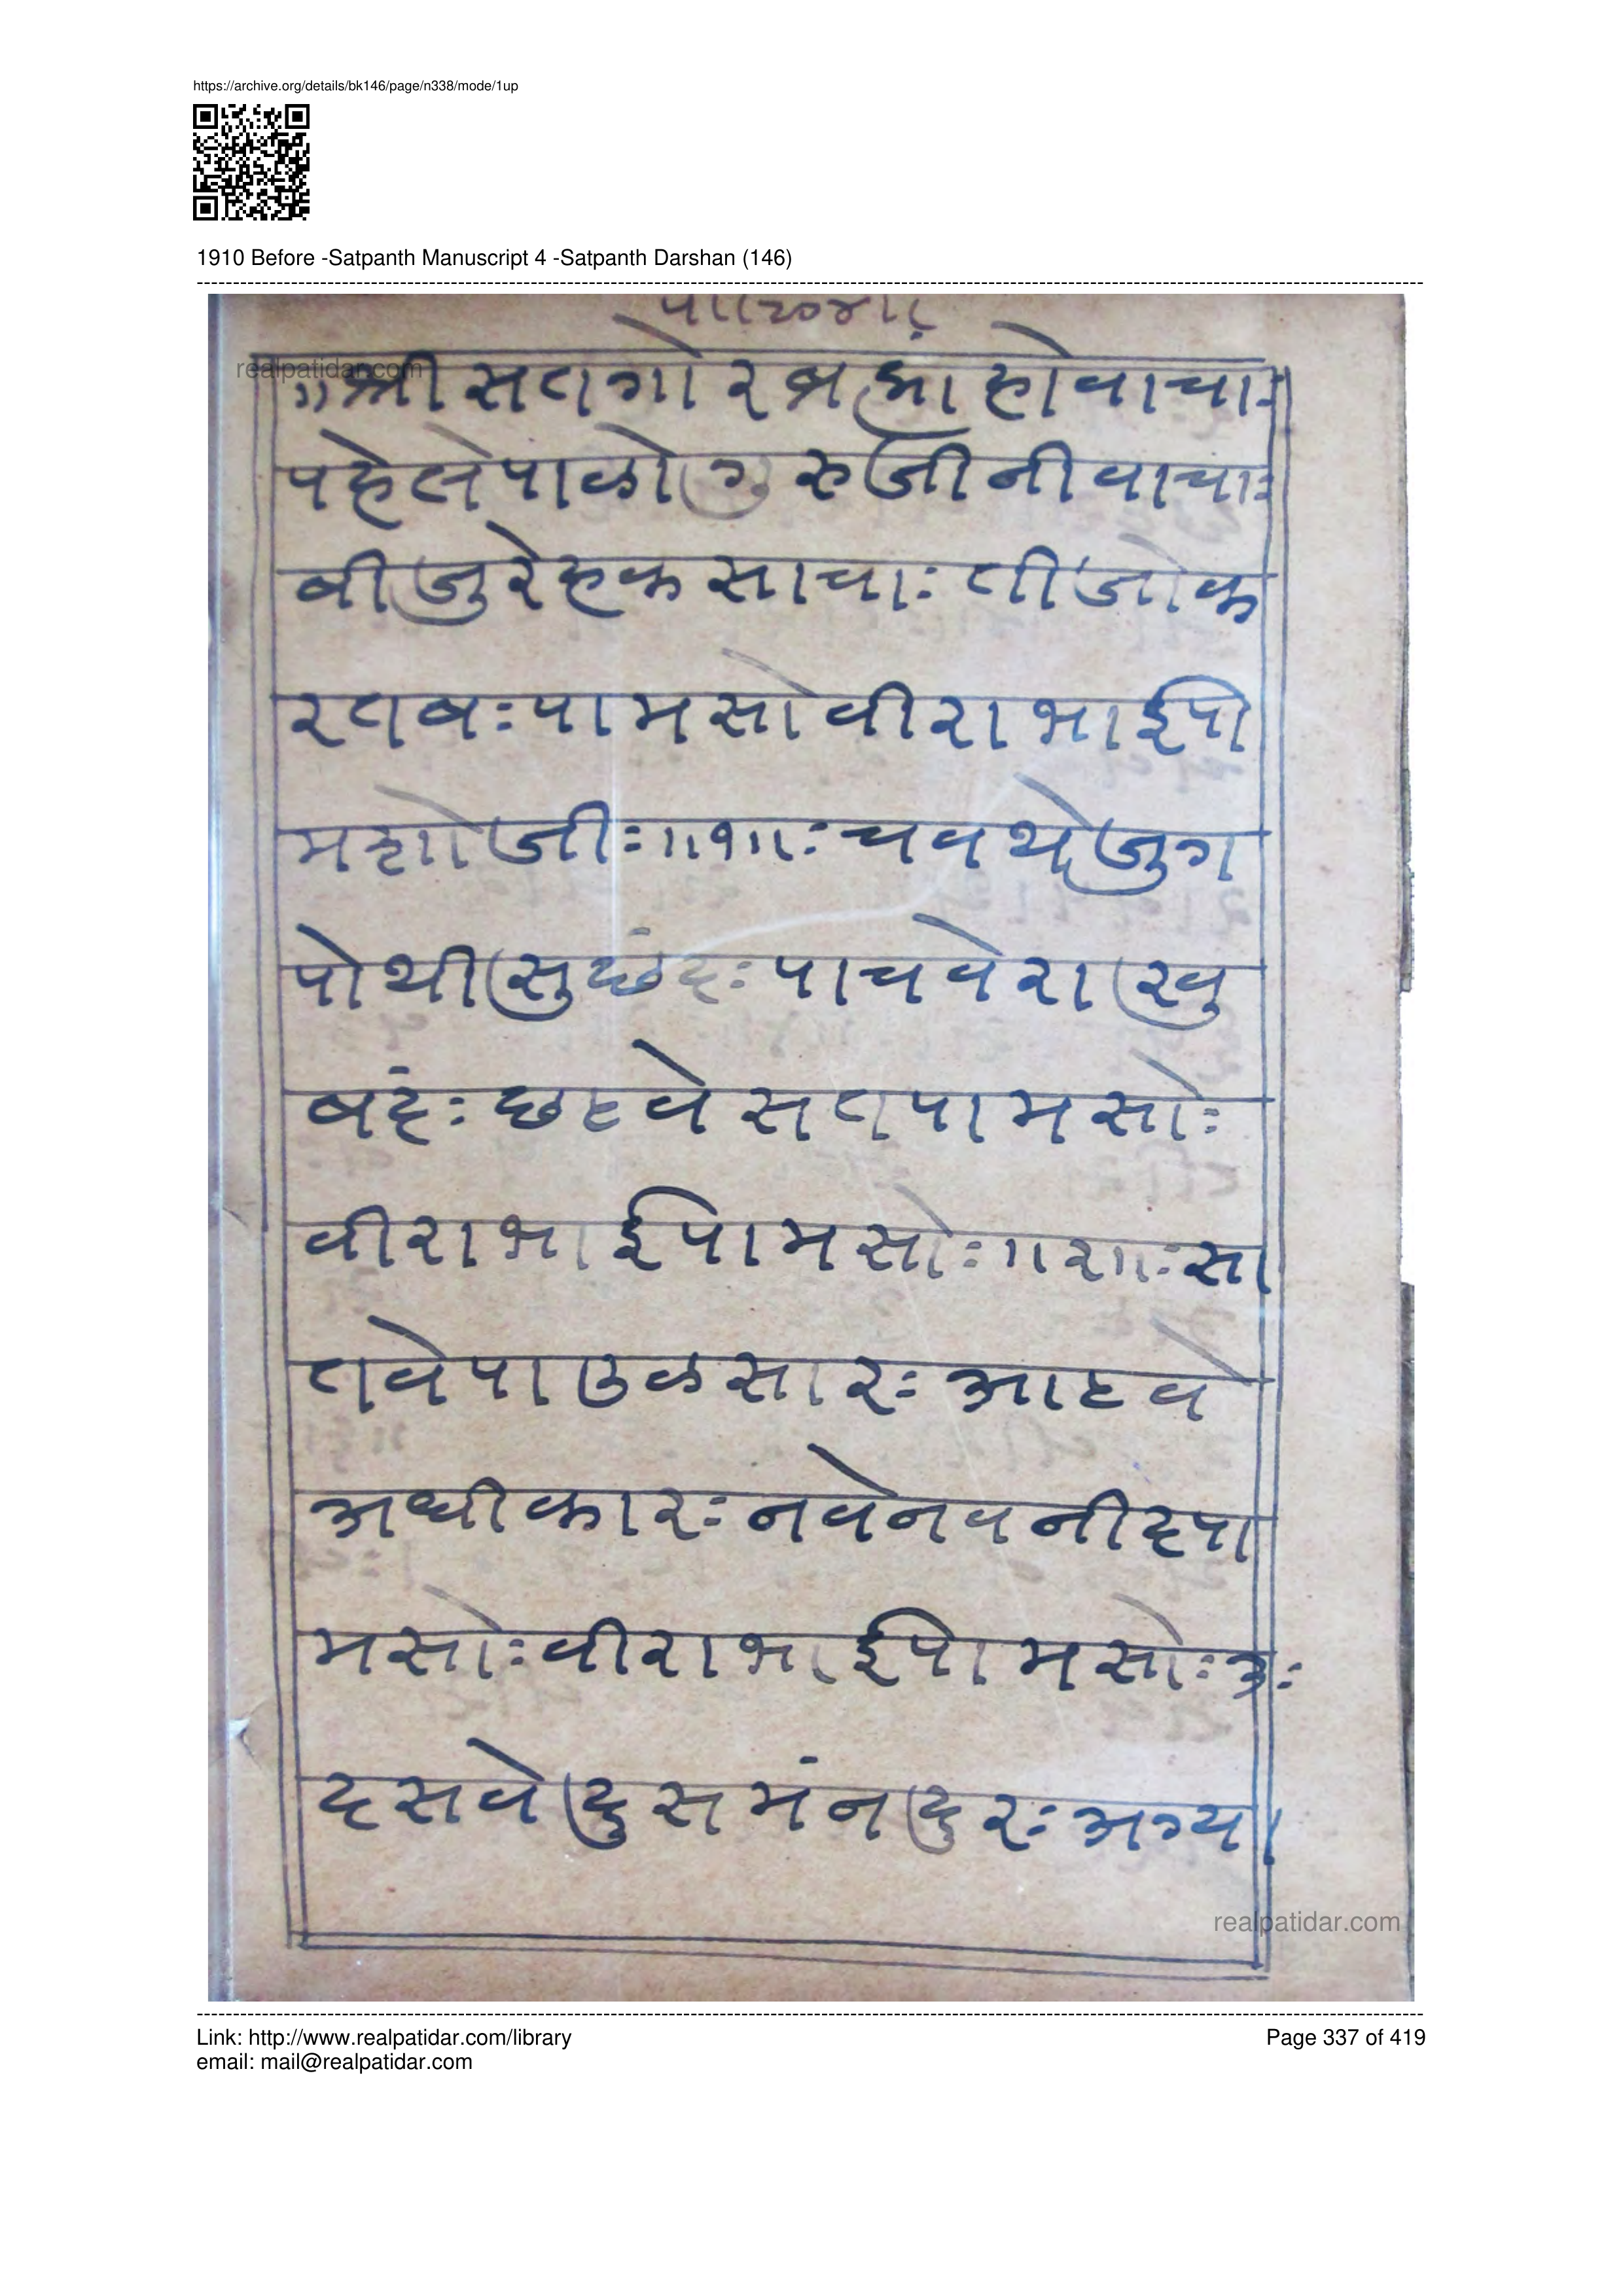 https://archive.org/details/bk146/page/n338/mode/1up
1910 Before -Satpanth Manuscript 4 -Satpanth Darshan (146)
realpatidar.com
॥श्री सतगोर ब्रह्मां होवाचाः
पहेले पाळो गुरुजी नी वाचाः
बीजु रे हक साचाः तीजो क
रतबः पामसो वीराभाई पा
मशो जीः॥१॥ः चवथे जुग
पोथी सु छंदः पाचवे राखु
बंदः छठवे सत पामसोः
वीराभाई पामसोः॥२॥ः सा
तवे पाउळ सारः आठवे
अधीकारः नवे नव नीद पा
मसोः वीराभाई पामसोः३ः
दसवे दुसमंन दुरः अग्या
realpatidar.com
Link: http://www.realpatidar.com/library
Page 337 of 419
email: mail@realpatidar.com